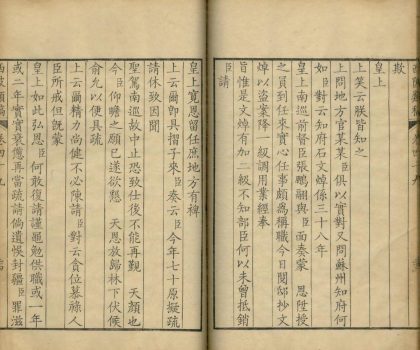 欺
皇上
上笑云朕皆知之
上問地方官某某臣俱以實對又問蘇州知府何
如臣對云知府石文焯係三十八年
皇上南巡前督臣張鵬翮與臣面奏蒙 恩陞授
之員到任來實心任事頗爲稱職今日閱邸抄文
焯以盜案降 級調用業經奉
旨惟是文焯有加二級不知部臣何以未曾抵銷
臣請
皇上寬恩留任庶地方有裨
上云爾即具摺子來臣奏云臣今年七十原擬疏
請休致因聞
聖駕南巡故中止恐致仕後不能再覲 天顏也
今臣仰瞻之願已遂欲懇 天恩放歸林下伏候
俞允以便具疏
上云爾精力尚健不必陳請臣對云貪位慕祿人
臣所戒但既蒙
皇上如此弘恩臣何敢復請謹黽勉供職或一年
或二年實實衰憊再當疏請倘遺悞封疆臣罪滋
西陂類稿 卷四十九